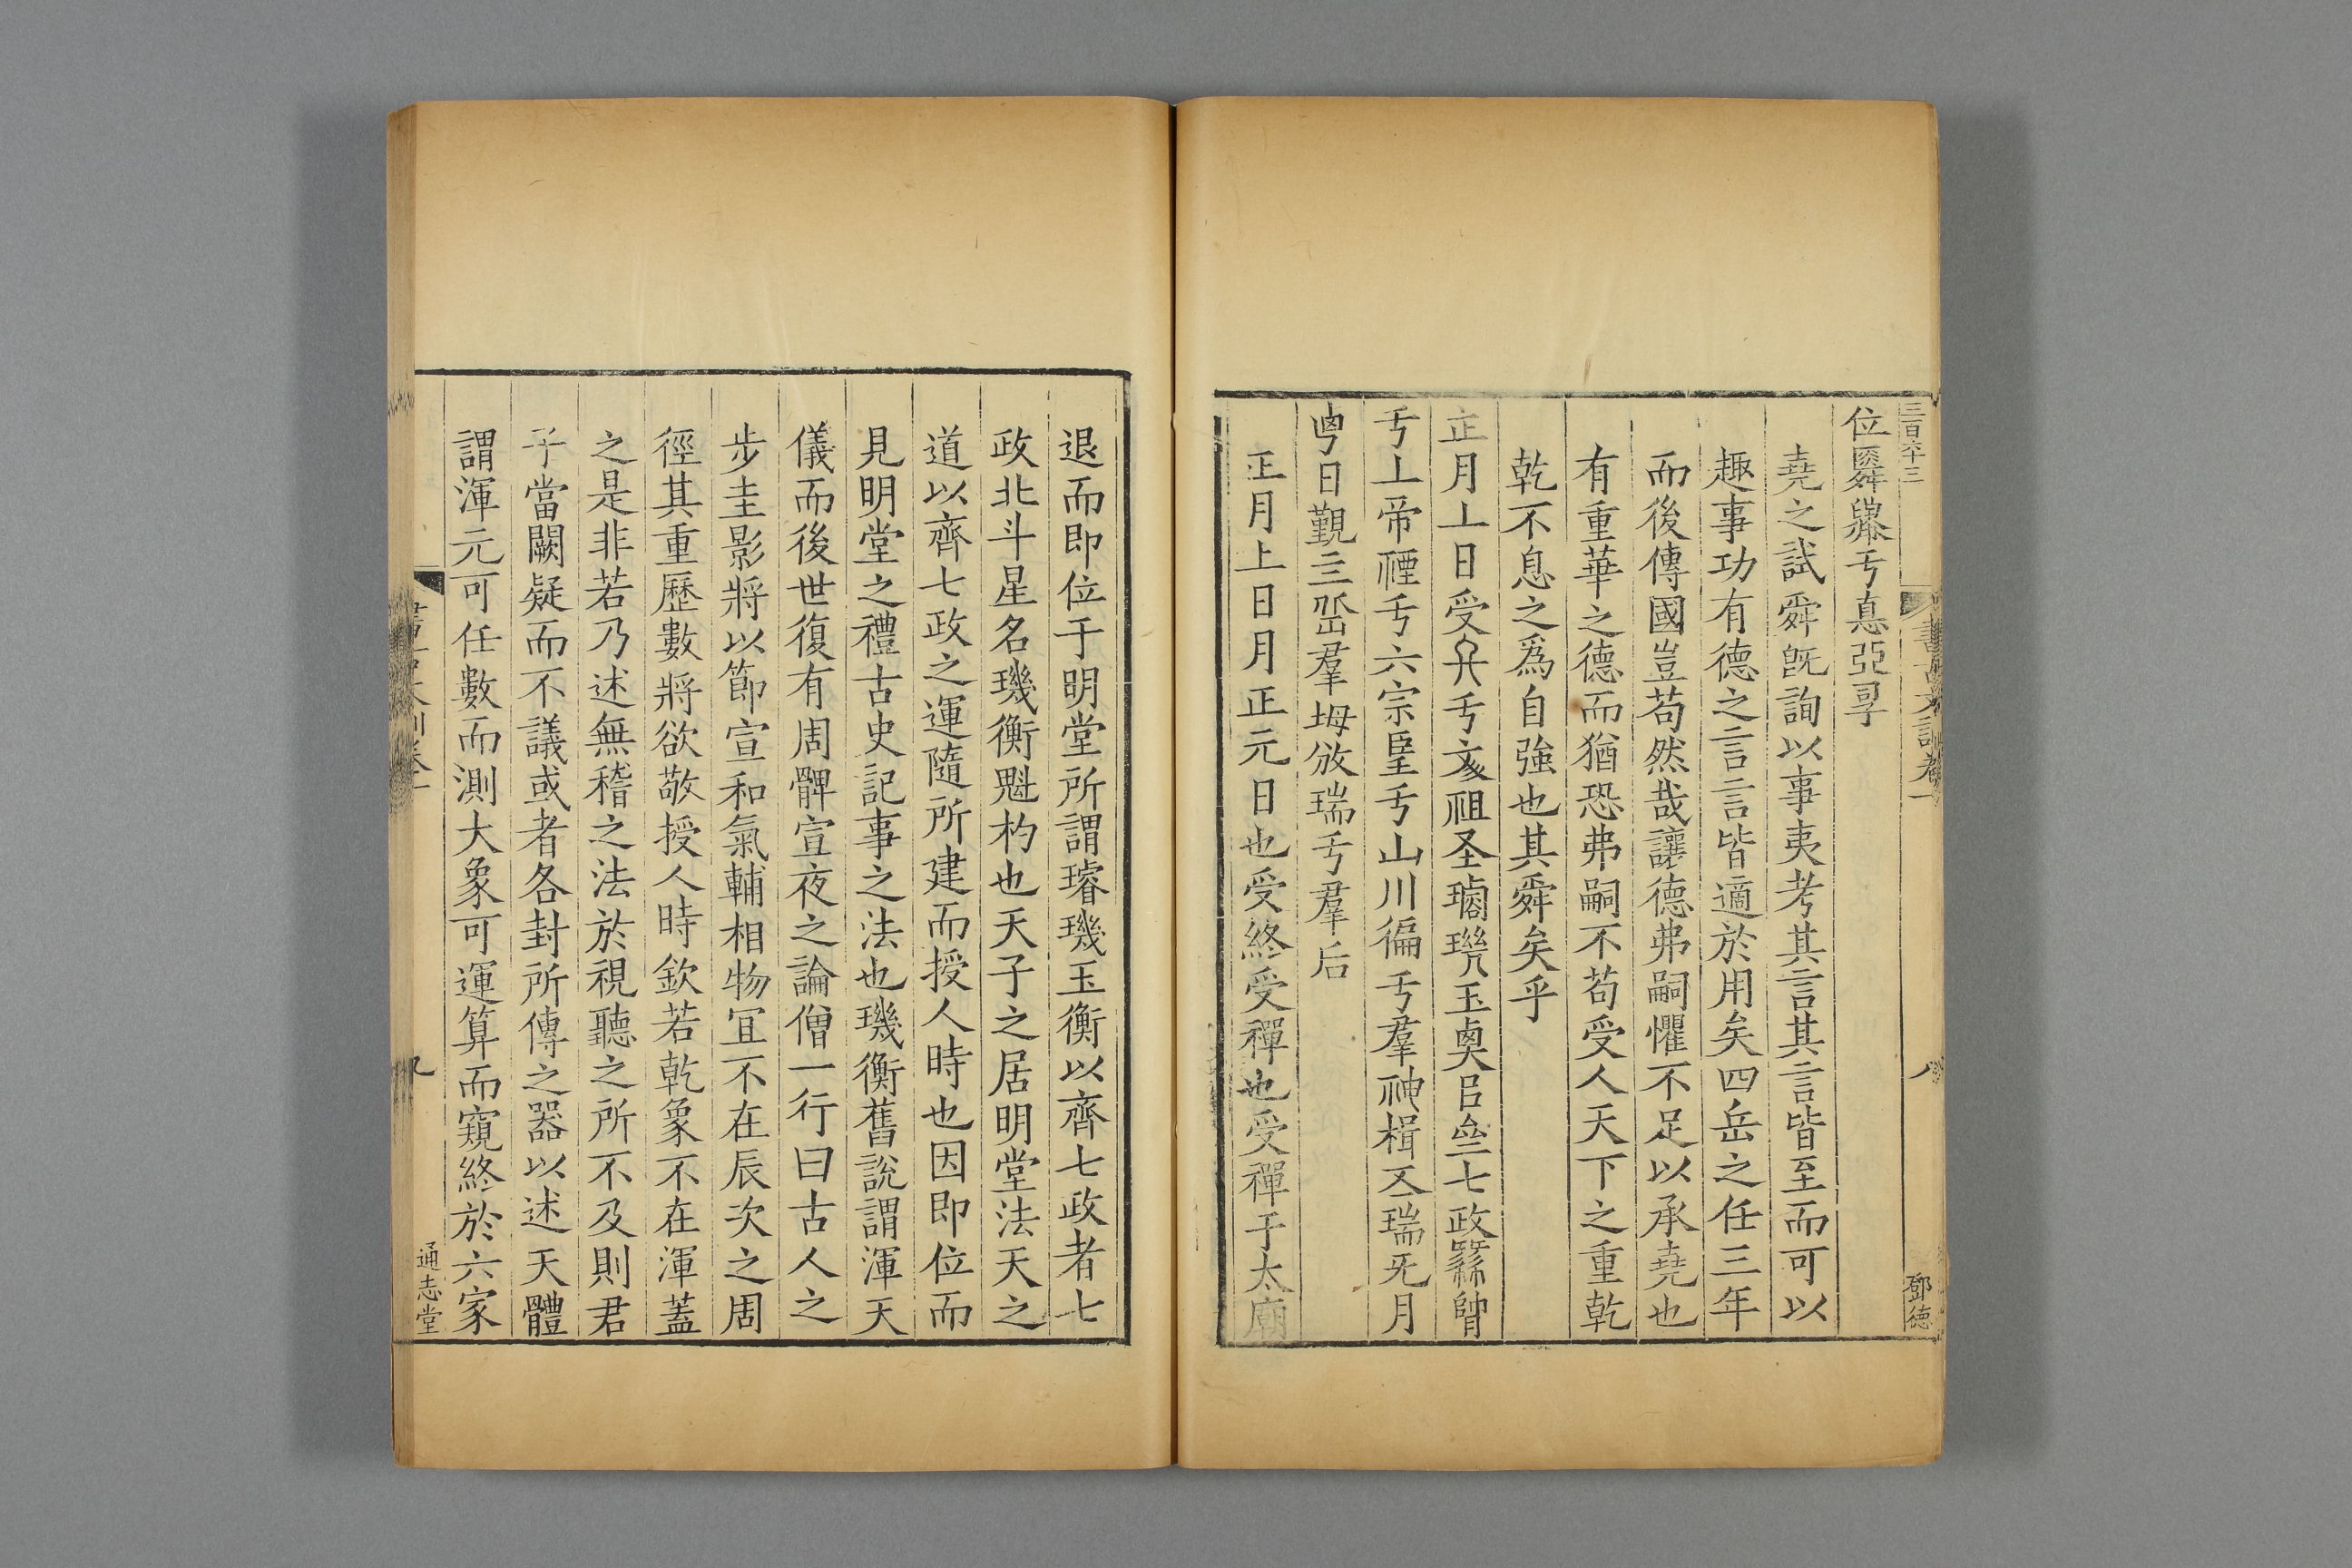 三百六十三
書古文訓卷一
八
鄧德
位舜舉亏悳亞孠
堯之試舜旣詢以事夷考其言其言皆至而可以
趣事功有德之言言皆適於用矣四岳之任三年
而後傳國豈苟然哉讓德弗嗣懼不足以承堯也
有重華之德而猶恐弗嗣不苟受人天下之重乾
乾不息之爲自強也其舜矣乎
正月丄日受亏祖玉七政
亏丄帝禋亏六宗亏山川徧亏羣神楫瑞月
日覲羣瑞亏羣后
正月上日月正元日也受終受禪也受禪于太廟
退而即位于明堂所謂璿璣玉衡以齊七政者七
政北斗星名璣衡魁杓也天子之居明堂法天之
道以齊七政之運隨所建而授人時也因即位而
見明堂之禮古史記事之法也璣衡舊說謂渾天
儀而後世復有周髀宣夜之論僧一行曰古人之
步圭影將以節宣和氣輔相物宜不在辰次之周
徑其重歷數將欲敬授人時欽若乾象不在渾蓋
之是非若乃述無稽之法於視聽之所不及則君
子當闕疑而不議或者各封所傳之器以述天體
謂渾元可任數而測大象可運算而窺終於六家
九
通志堂